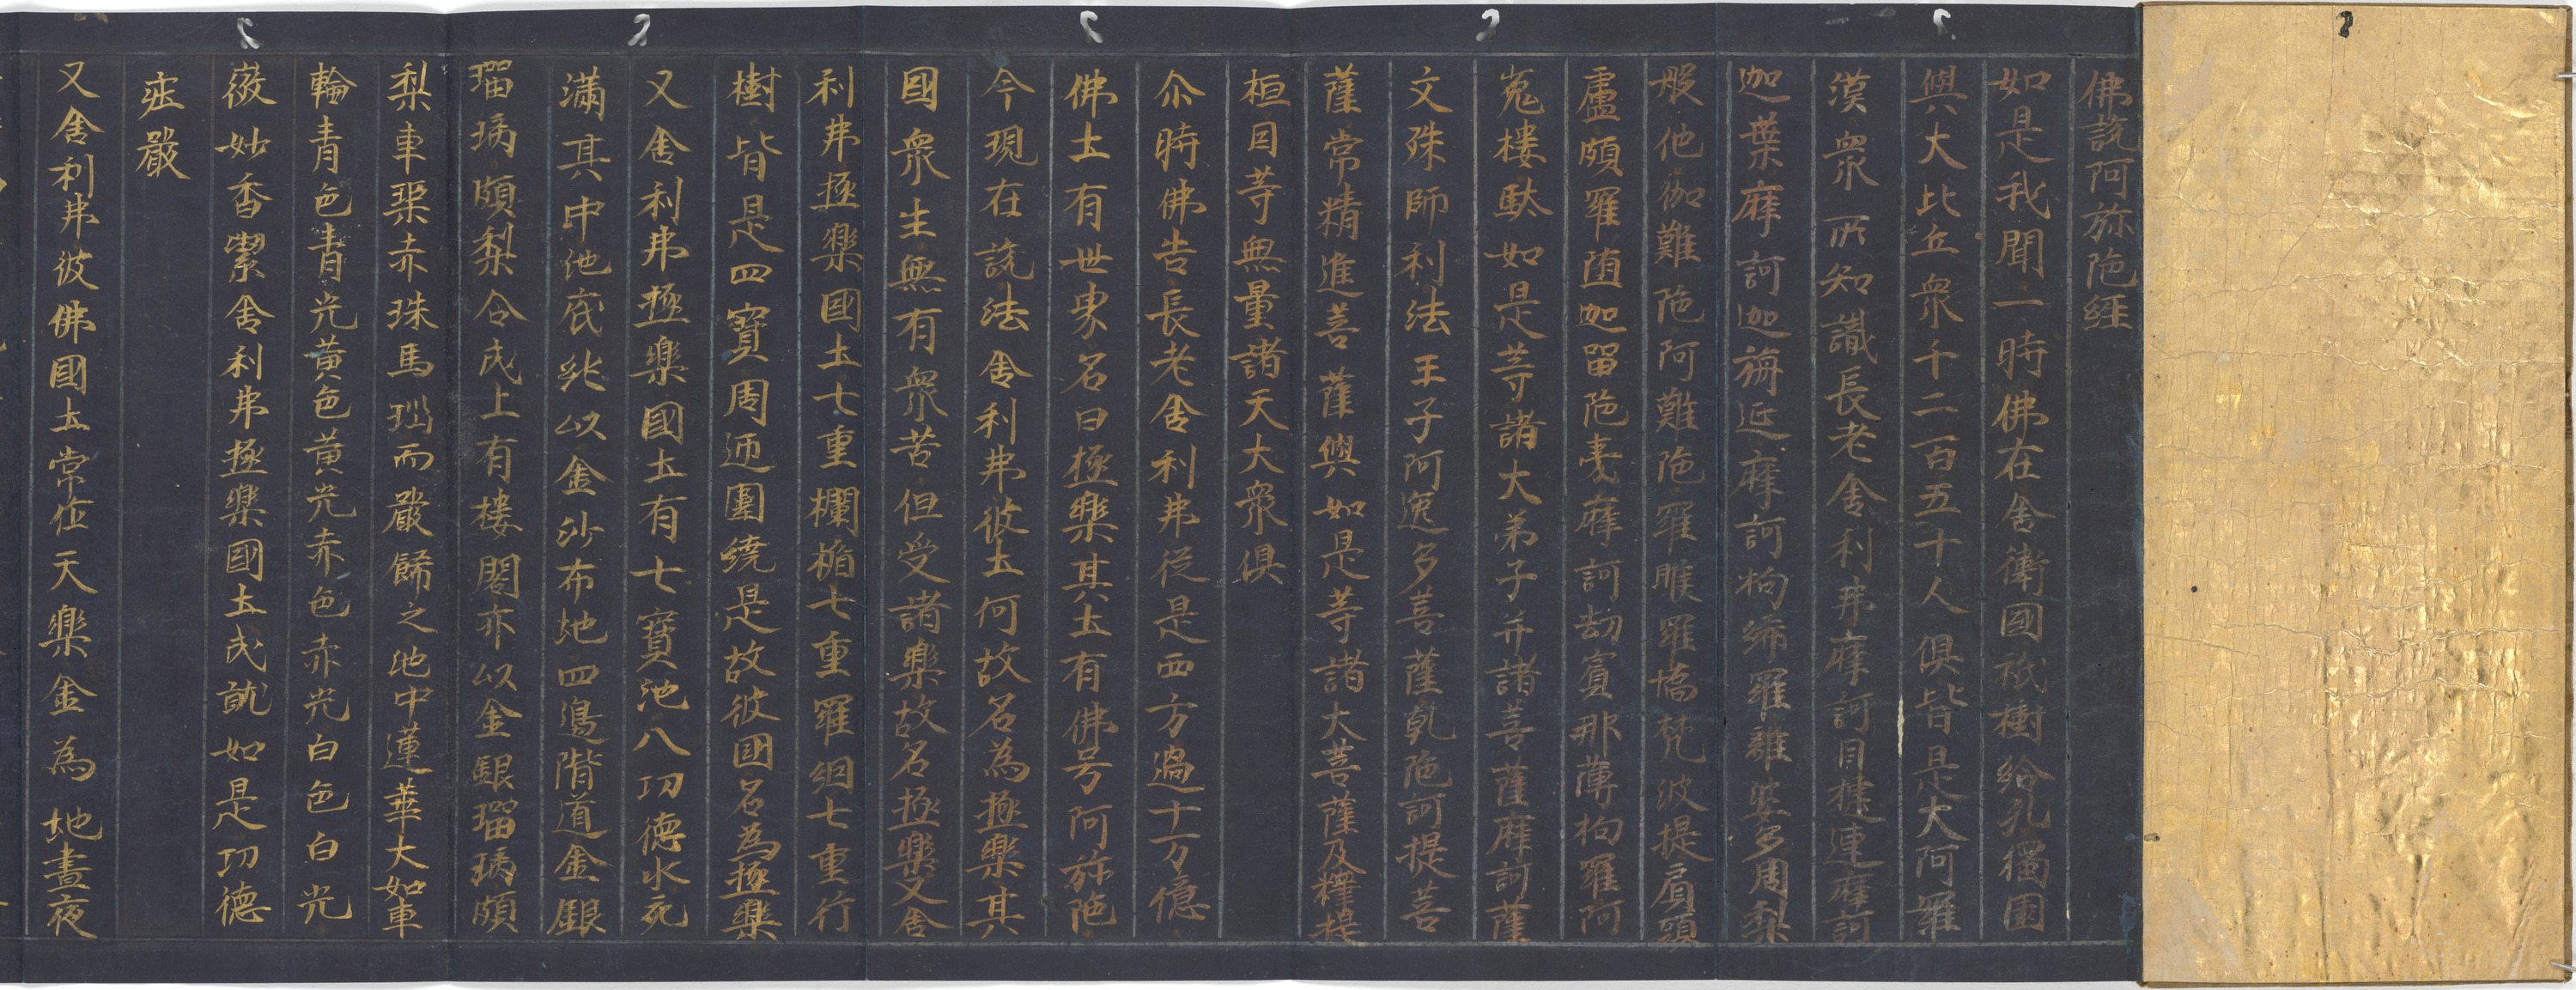 佛說阿弥陁經
如是我聞一時佛在舍衛國祇樹給孤獨園
與大比丘衆千二百五十人俱皆是大阿羅
漢衆所知識長老舍利弗摩訶目揵連摩訶
迦葉摩訶迦旃延摩訶拘絺羅離婆多周梨
般他伽難陁阿難陁羅睺羅憍梵波提賓頭
盧頗羅堕迦留陁夷摩訶劫賓那薄拘羅阿
㝹樓馱如是等諸大弟子并諸菩薩摩訶薩
文殊師利法王子阿逸多菩薩乾陁訶提菩
薩常精進菩薩與如是等諸大菩薩及釋提
桓因等無量諸天大衆俱
尒時佛告長老舍利弗從是西方過十万億
佛土有世界名曰極樂其土有佛号阿弥陁
今現在說法舍利弗彼土何故名為極樂其
國衆生無有衆苦但受諸樂故名極樂又舍
利弗極樂國土七重欄楯七重羅網七重行
樹皆是四寶周迊圍繞是故彼國名為極樂
又舍利弗極樂國土有七寶池八功德水充
滿其中池底純以金沙布地四邊階道金銀
瑠璃頗梨合成上有樓閣亦以金銀瑠璃頗
梨車璖赤珠馬瑙而嚴餙之池中蓮華大如車
輪青色青光黃色黃光赤色赤光白色白光
微妙香潔舍利弗極樂國土成就如是功德
莊嚴
又舍利弗彼佛國土常作天樂金為地晝夜